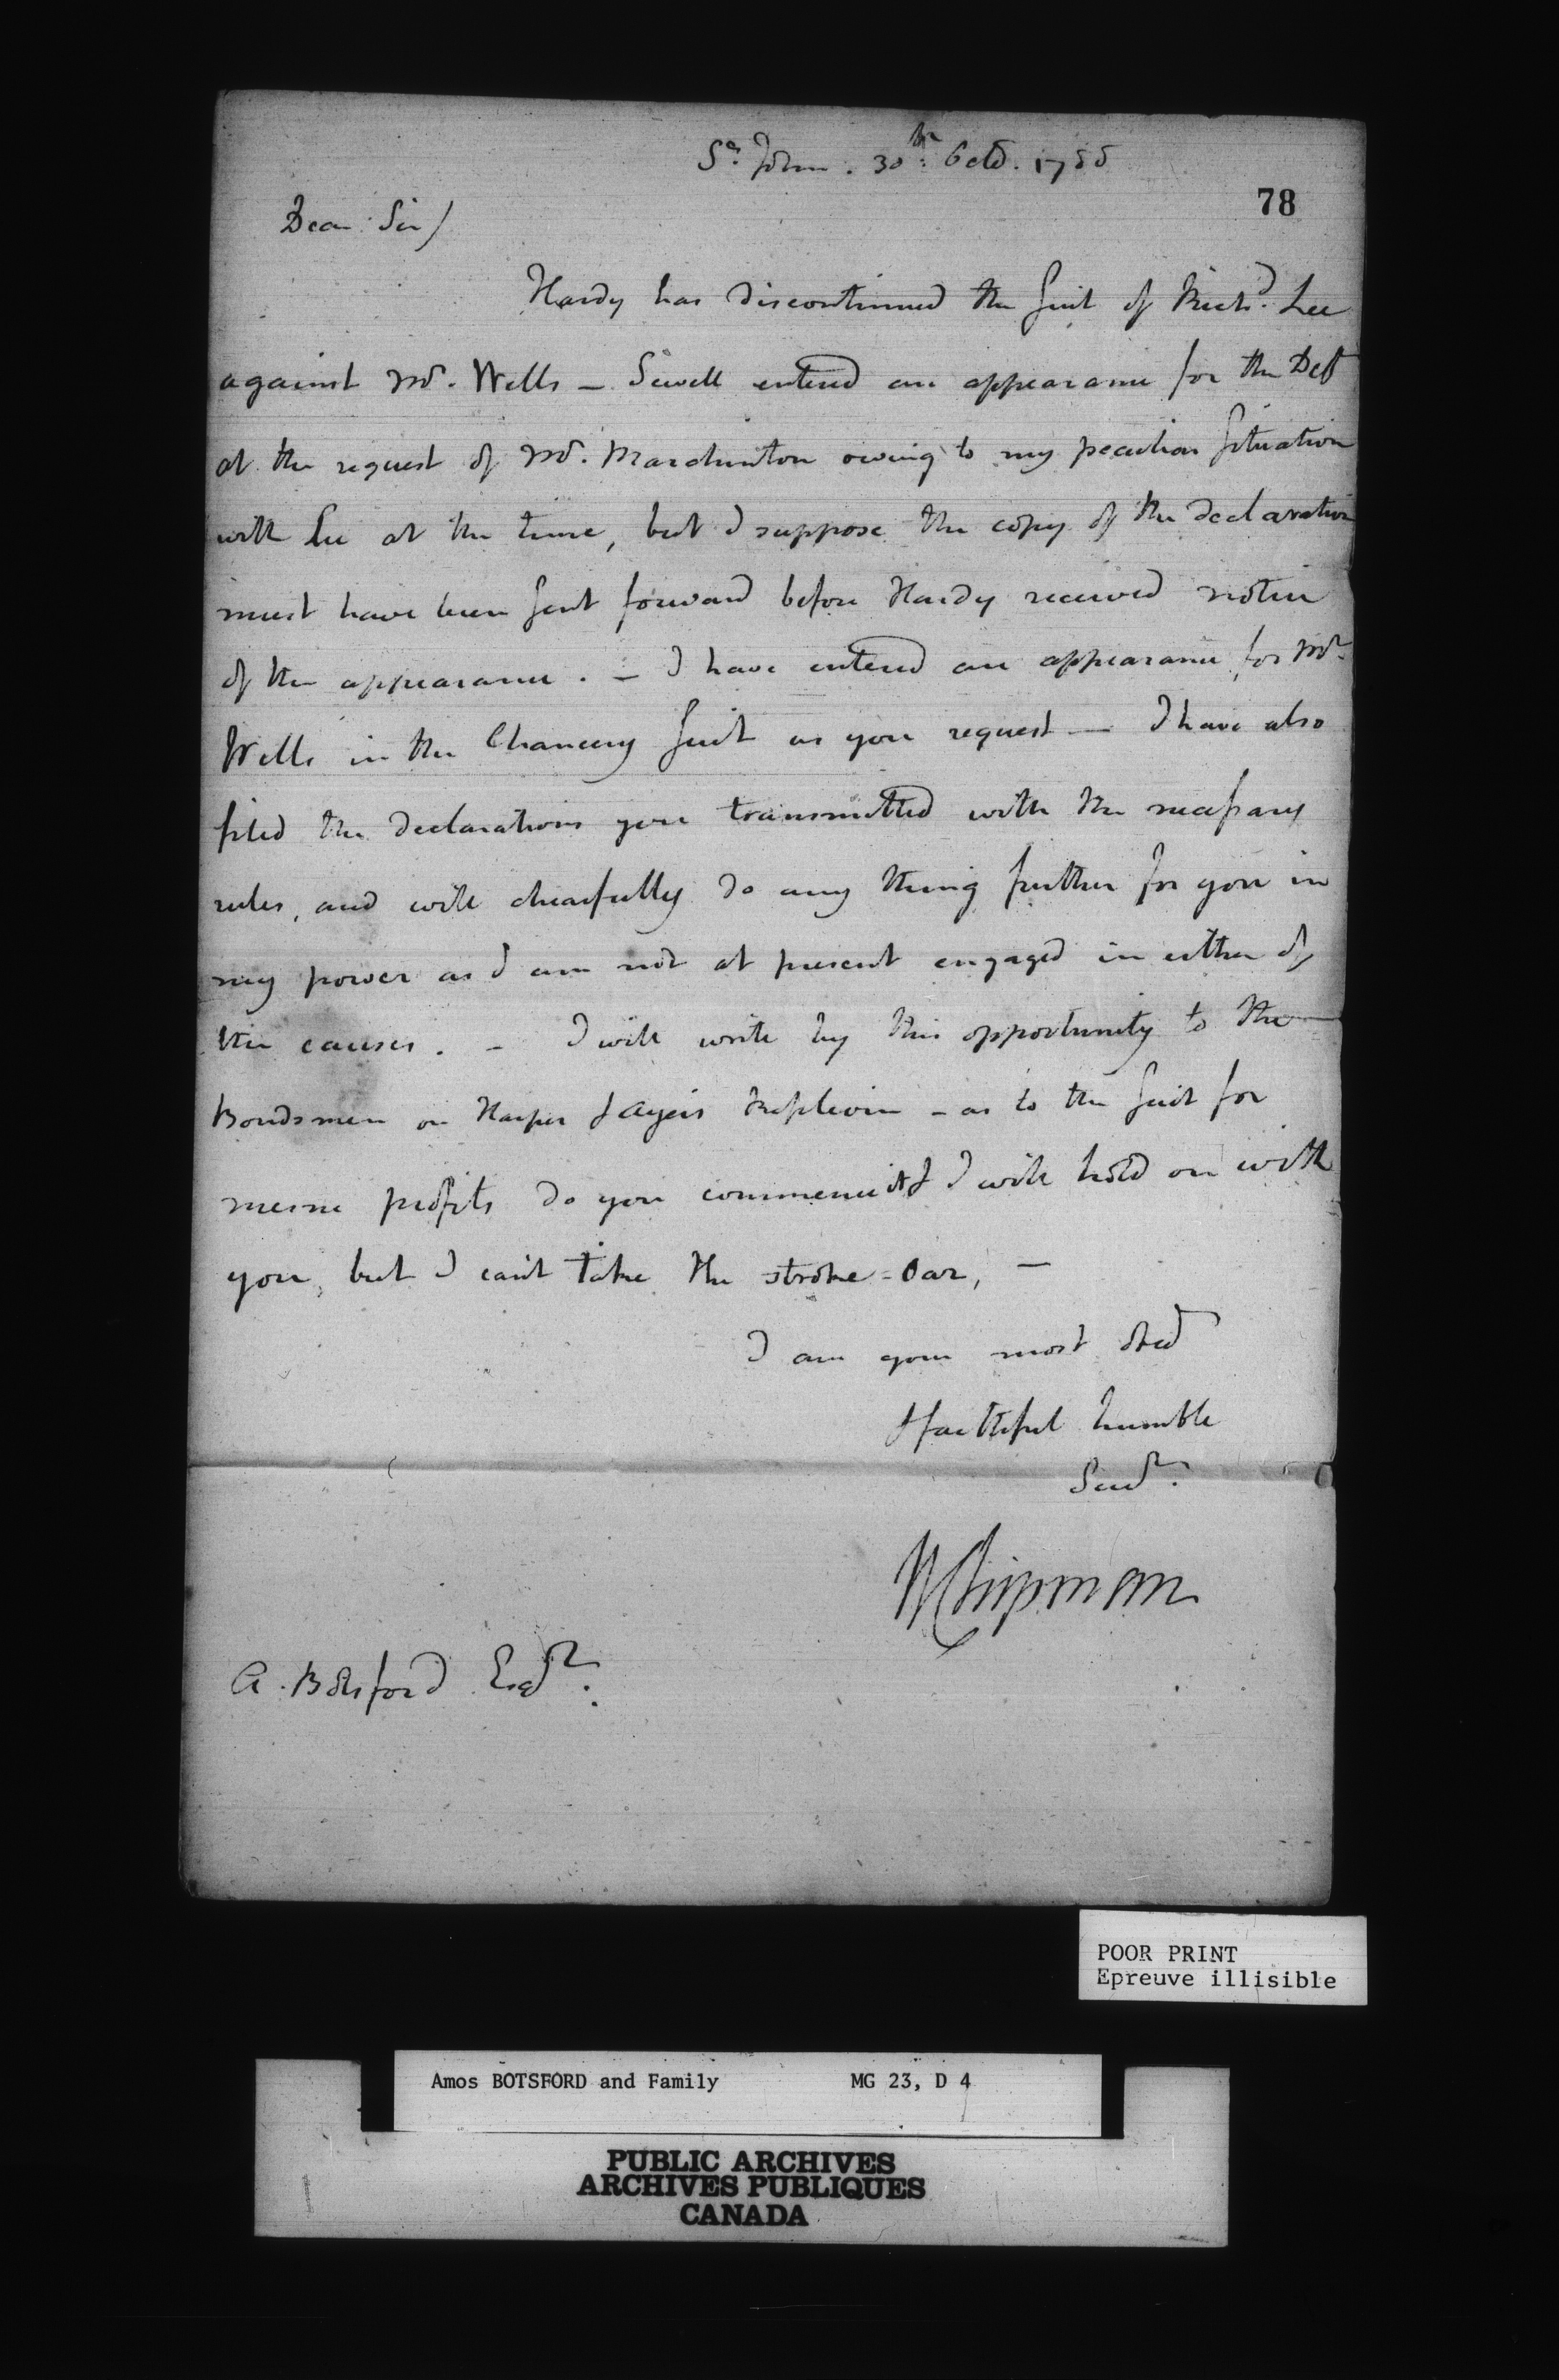 St. John. 30th. Octo. 1788
78
Dear Sir/
Hardy has discontinued the suit of Richd. Lee
against Mr. Wells – Sewell entered an appearance for the Deft
at the request of Mr. Marchinton owing to my peculiar situation
with Lee at the time, but I suppose the copy of the declaration
must have been sent forward before Hardy received notice
of the appearance. – I have entered an appearance for Mr.
Wells in the Chancery suit as you request — I have also
filed the declarations you transmitted with the necessary
rules, and will chearfully do any thing further for you in
my power as I am not at present engaged in either of
the causes. – I will write by this opportunity to the
Bondsmen on Harper & Ayers Replevin – as to the suit for
mesne profits do you commence it & I will hold on with
you, but I can't take the stroke-Oar, —
I am your most obed
& faithful humble
Servt.
W Chipman
A. Botsford Esqr.
POOR PRINT
Epreuve illisible
Amos BOTSFORD and Family MG 23, D 4
PUBLIC ARCHIVES
ARCHIVES PUBLIQUES
CANADA